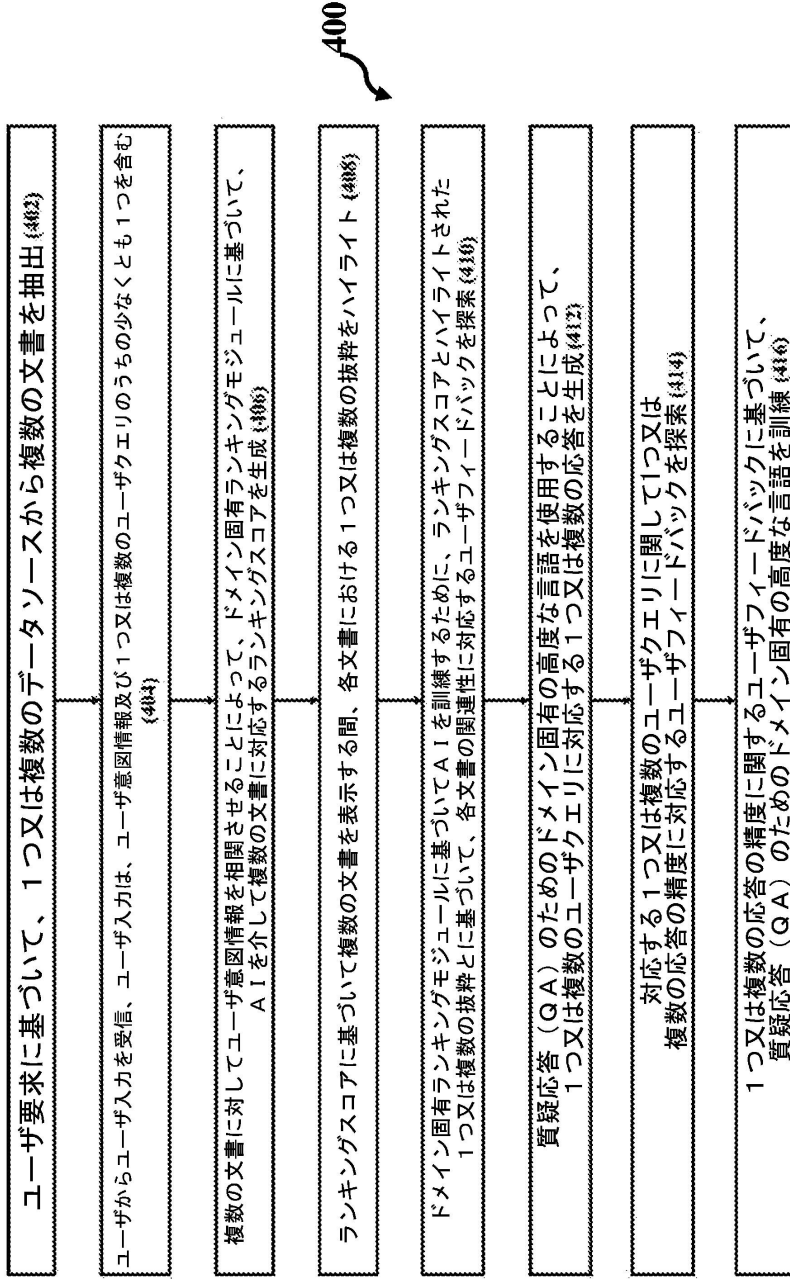 400
ユーザ要求に基づいて、1つ又は複数のデータソースから複数の文書を抽出{402}
ユーザからユーザ入力を受信、ユーザ入力は、ユーザ意図情報及び1つ又は複数のユーザクエリのうちの少なくとも1つを含む
{404}
複数の文書に対してユーザ意図情報を相関させることによって、ドメイン固有ランキングモジュールに基づいて、
AIを介して複数の文書に対応するランキングスコアを生成{406}
ランキングスコアに基づいて複数の文書を表示する間、各文書における1つ又は複数の抜粋をハイライト{408}
ドメイン固有ランキングモジュールに基づいてAIを訓練するために、ランキングスコアとハイライトされた
1つ又は複数の抜粋とに基づいて、各文書の関連性に対応するユーザフィードバックを探索{410}
質疑応答(QA)のためのドメイン固有の高度な言語を使用することによって、
1つ又は複数のユーザクエリに対応する1つ又は複数の応答を生成{412}
対応する1つ又は複数のユーザクエリに関して1つ又は
複数の応答の精度に対応するユーザフィードバックを探索{414}
1つ又は複数の応答の精度に関するユーザフィードバックに基づいて、
質疑応答(QA)のためのドメイン固有の高度な言語を訓練{416}